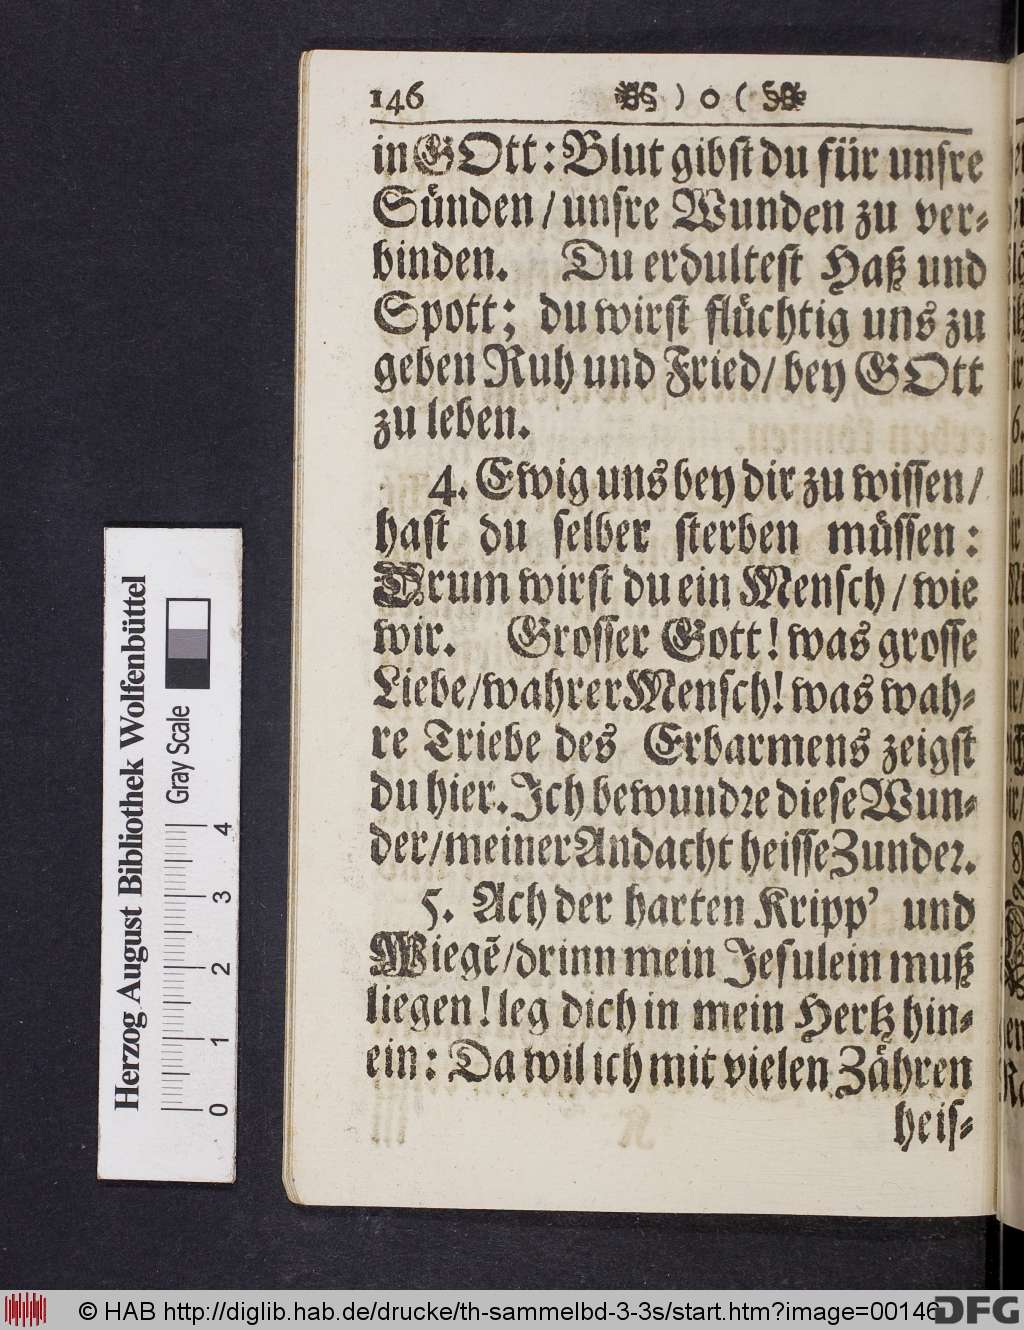 146 ) o (
in GOtt: Blut gibst du für unsre
Sünden / unsre Wunden zu ver-
binden. Du erdultest Haß und
Spott; du wirst flüchtig uns zu
geben Ruh und Fried / bey GOtt
zu leben.
4. Ewig uns bey dir zu wissen /
hast du selber sterben müssen:
Drum wirst du ein Mensch / wie
wir. Grosser Gott! was grosse
Liebe / wahrer Mensch! was wah-
re Triebe des Erbarmens zeigst
du hier. Ich bewundre diese Wun-
der / meiner Andacht heisse Zunder.
5. Ach der harten Kripp' und
Wiegẽ / drinn mein Jesulein muß
liegen! leg dich in mein Hertz hin-
ein: Da wil ich mit vielen Zähren
heis-
Herzog August Bibliothek Wolfenbüttel
Gray Scale
0 1 2 3 4
© HAB http://diglib.hab.de/drucke/th-sammelbd-3-3s/start.htm?image=00146
DFG